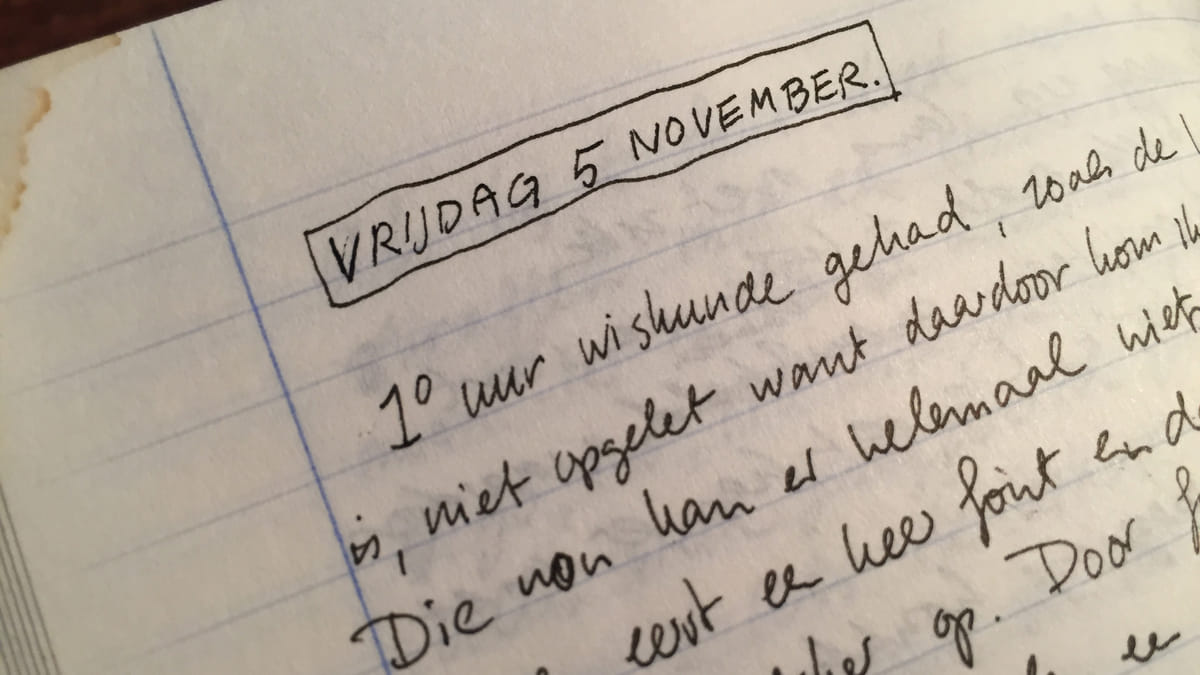 VRIJDAG 5 NOVEMBER.
1° uur wiskunde gehad, zoals de
is, niet opgelet want daardoor kom ik
Die non kan er helemaal niet
eerst een keer fout en d
op. Door
een